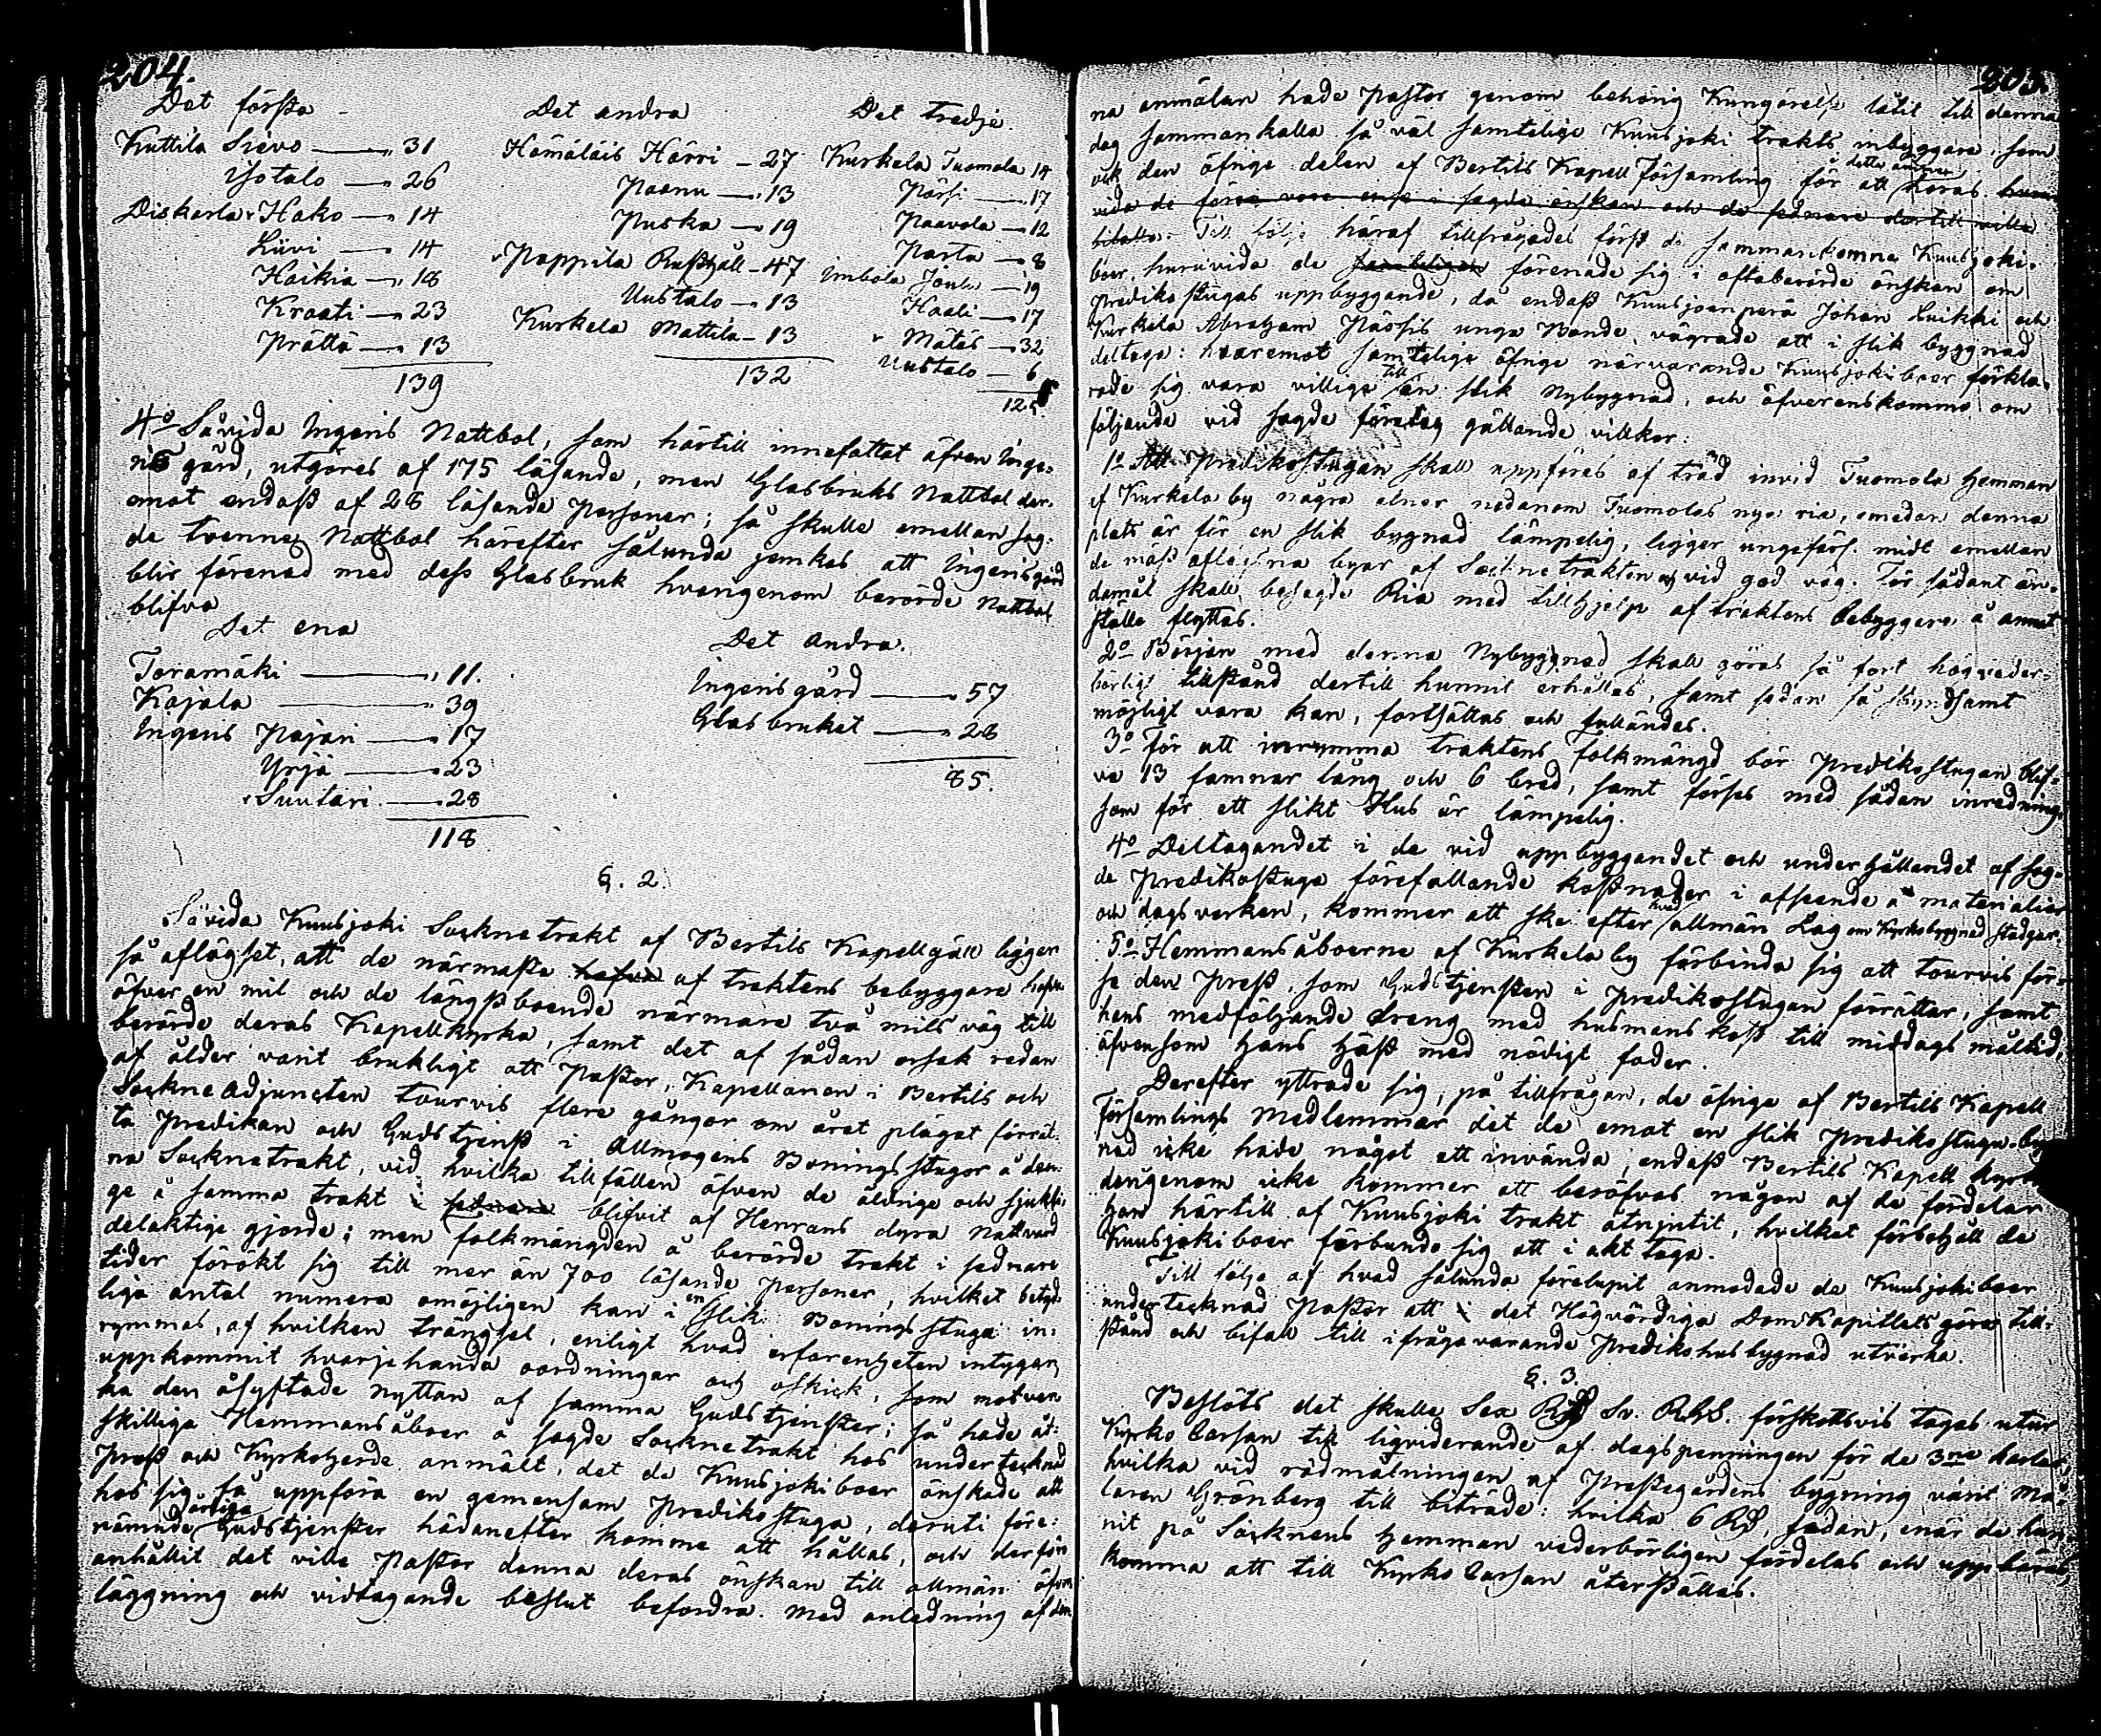 204.
Det första
Kuttila Sievo — 31
Ysotalo — 26
Diskarla Hako — 14
Liivi — 14
Haikia — 18
Kraati — 23
Prättä — 13
139
Det andra
Hämäläis Härri — 27
Paanu — 13
Puska — 19
Pappila Rusthåll — 47
Uustalo — 13
Kurkela Mattila — 13
132
Det tredje.
Kurkela Tuomola 14
Pärsi — 17
Paavola — 12
Parta — 8
Imbola Joulu — 19
Haali — 17
Mätäs — 32
Uustalo — 6
125.
4o Såvida Ingeris Nattbol, som härtill innefattat äfven Inge-
ris gård, utgöres af 175 läsande, men Glasbruks Nattbol der-
emot endast af 28 läsande Personer; så skulle emellan sag-
de tvenne Nattbol härefter sålunda jemkas att Ingerisgård
blir förenad med dess Glasbruk hvarigenom berörde Nattbol
blifva
Det ena
Toramäki — 11.
Kajala — 39
Ingeris Pajari — 17
Yrjä — 23
Suutari — 28
118
Det andra.
Ingeris gård — 57
Glasbruket — 28
85.
§. 2.
Såvida Kuusjoki Sockne trakt af Bertils Kapellgäll ligger
så aflägset, att de närmaste hafva af traktens bebyggare hafva
öfver en mil och de längst boende närmare två mils väg till
berörde deras Kapellkyrka, samt det af sådan orsak redan
af ålder varit brukligt att Pastor, Kapellanen i Bertils och
Sockne Adjuncten tourvis flere gångor om året plägat förrät-
ta Predikan och Gudstjenst i Allmogens Boningsstugor å den-
na Socknetrakt, vid hvilka tillfällen äfven de åldrige och sjukli-
ge å samma trakt i sednare blifvit af Herrans dyra Nattvard
delaktige gjorde; men folkmängden å berörde trakt i sednare
tider förökt sig till mer än 700 läsande Personer, hvilket betyd-
liga antal numera omöjligen kan i en slik Boningsstuga in-
rymmas, af hvilken trängsel, enligt hvad erfarenheten intygar,
uppkommit hvarjehanda oordningar och oskick, som motver-
ka den åsyftade nyttan af samma Gudstjenster; så hade åt-
skillige Hemmansåboer å sagde Socknetrakt hos undertecknad
Prost och Kyrkoherde anmält, det de Kuusjokiboer önskade att
hos sig få uppföra en gemensam Predikostuga, deruti före-
nämnde årliga Gudstjenster hädanefter komme att hållas, och derför
anhållit det ville Pastor denna deras önskan till allmän öfver-
läggning och vidtagande beslut befordra. Med anledning af den-
205.
na anmälan hade Pastor genom behörig Kungörelse låtit till denna
dag sammankalla så väl samtelige Kuusjoki trakts inbyggare som
ock den öfrige delen af Bertils Kapell Församling för att å detta ämne höras huru-
vida de förre vore ense i sagde önskan och de sednare dertill ville
bifalla. Till följe häraf tillfrågades först de sammankomne Kuusjoki-
boer, huruvida de samteligen förenade sig i oftaberörde önskan om
Predikostugas uppbyggande, då endast Kuusjoenperä Johan Luikki och
Kurkela Abraham Pärssis unga Bonde, vägrade att i slik byggnad
deltaga: hvaremot samtelige öfrige närvarande Kuusjokiboer förkla-
rade sig vara villige till en slik Nybygnad, och öfverenskommo om
följande vid sagde företag gällande villkor:
1o Att Predikostugan skall uppföras af träd invid Tuomola Hemman
af Kurkela by några alnar nedanom Tuomolas nya ria, emedan denna
plats är för en slik bygnad lämpelig, ligger ungefärl. midt emellan
de mäst aflägsna byar af Socknetrakten och vid god väg. För sådant än-
damål skall besagde Ria med tillhjelp af traktens bebyggare å annat
ställe flyttas.
2o Början med denna Nybyggnad skall göras så fort högveder-
börligt tillstånd dertill hunnit erhållas, samt sedan så skyndsamt
möjligt vara kan, fortsättas och fulländas.
3o för att inrymma traktens folkmängd bör Predikostugan blif-
va 13 famnar lång och 6 bred, samt förses med sådan inredning,
som för ett slikt Hus är lämpelig.
4o Deltagandet i de vid uppbyggandet och underhållandet af sag-
de Predikostuga förefallande kostnader i afseende å materialier
och dagsverken, kommer att ske efter hvad allmän Lag om Kyrkobyggnad stadgar.
5o Hemmansåboerne af Kurkela by förbinda sig att tourvis för-
se den Prest, som Gudstjensten i Predikostugan förrättar, samt
hans medföljande dreng med husmans kost till middags måltid,
äfvensom hans häst med nödigt foder.
Derefter yttrade sig, på tillfrågan, de öfrige af Bertils Kapell
Församlings Medlemmar det de emot en slik Predikostugu byg-
nad icke hade något att invända, endast Bertils Kapell Kyrka
derigenom icke kommer att beröfvas någon af de fördelar
han härtill af Kuusjoki trakt åtnjutit, hvilket förbehåll de
Kuusjokiboer förbundo sig att i akt taga.
Till följe af hvad sålunda förelupit anmodade de Kuusjokiboer
undertecknad Pastor att i det Högvördiga DomKapitlets göra till-
stånd och bifall till ifrågavarande Predikohusbygnad utverka.
§. 3.
Beslöts det skulle Sex Rd Sv. RGS. förskottsvis tagas utur
Kyrko Cassan till liqviderande af dagspenningen för de 3ne karlar,
hvilka vid rödmålningen af Prestegårdens bygning varit Må-
laren Grönberg till biträde: hvilka 6 Rd, sedan, enär de hun-
nit på Socknens Hemman vederbörligen fördelas och uppbäras,
komma att till Kyrko Cassan återställas.